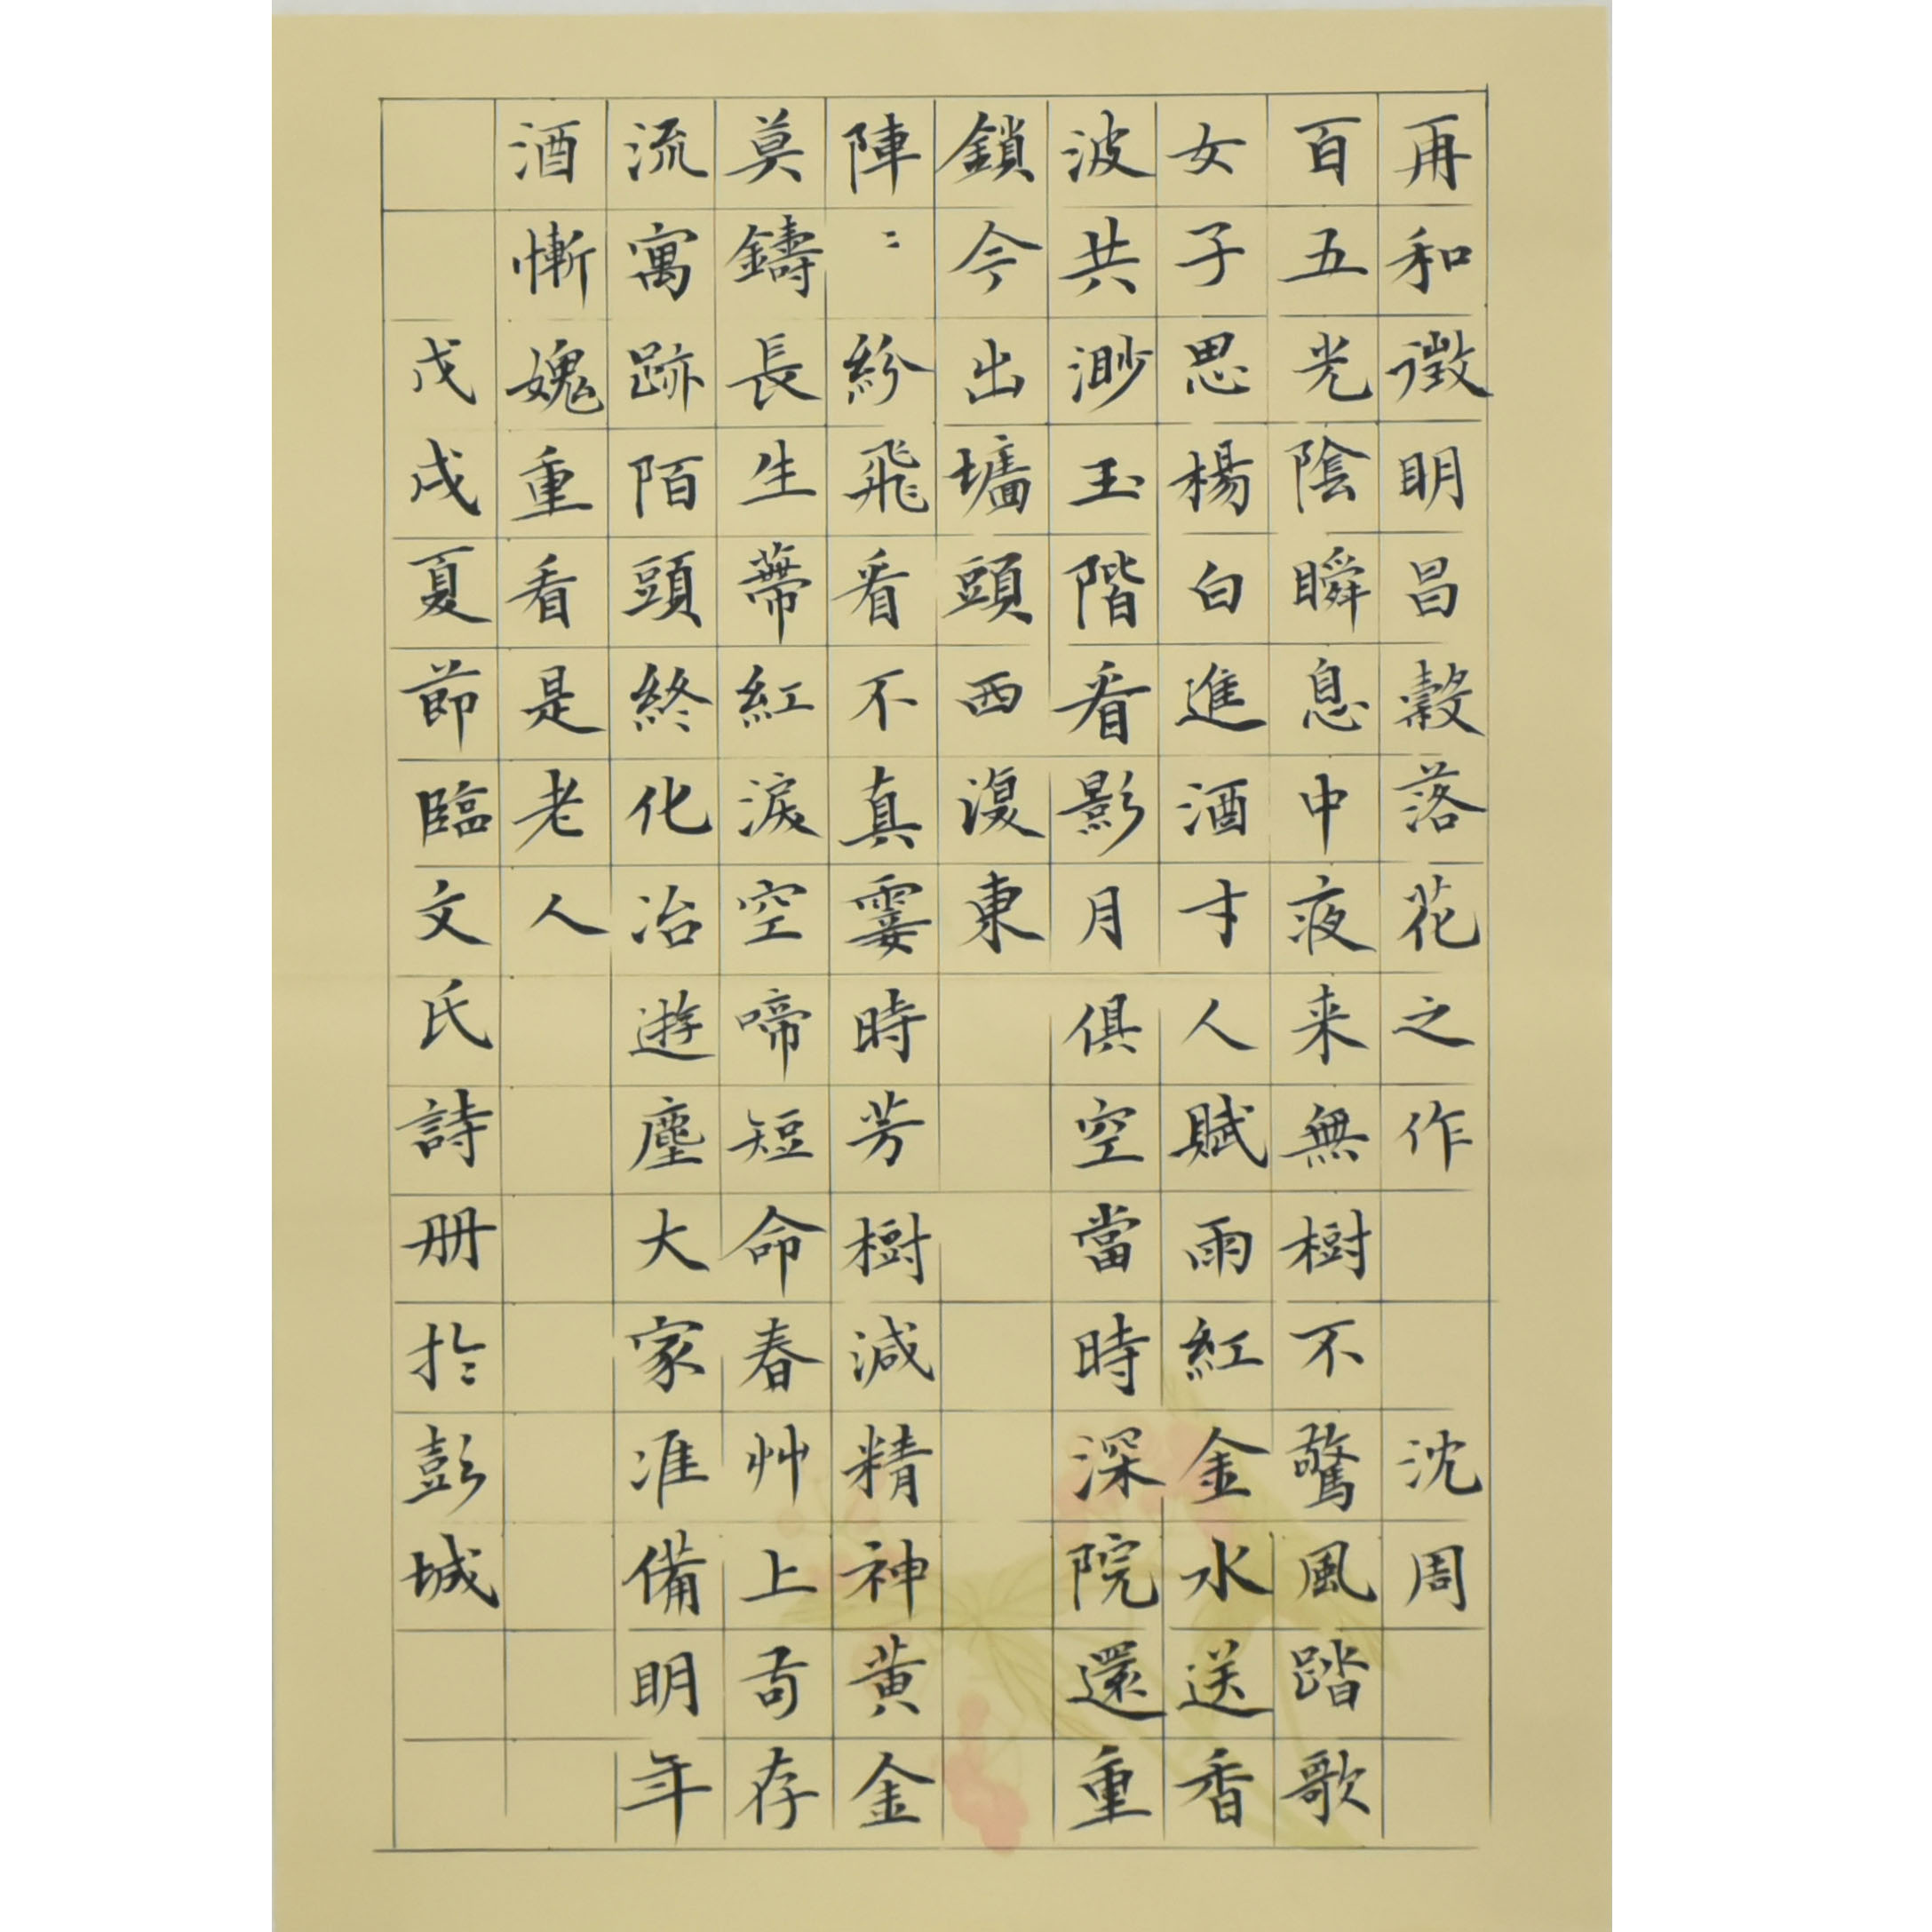 再和徵明昌穀落花之作 沈周
百五光陰瞬息中夜来無樹不驚風踏歌
女子思楊白進酒才人賦雨紅金水送香
波共渺玉階看影月俱空當時深院還重
鎖今出墻頭西復東
陣〻紛飛看不真霎時芳樹減精神黄金
莫鑄長生蔕紅淚空啼短命春艸上苟存
流寓跡陌頭終化冶遊塵大家准備明年
酒慚媿重看是老人
戊戌夏節臨文氏詩册扵彭城